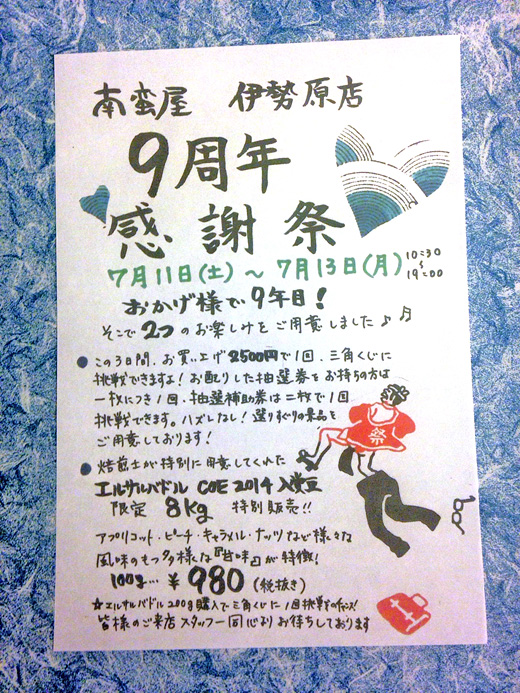 南蛮屋 伊勢原店
9周年
感謝祭
7月11日(土)～7月13日(月) 10:30～19:00
おかげ様で9年目!
そこで2つのお楽しみをご用意しました♪
●この3日間、お買い上げ2500円で1回、三角くじに
挑戦できますよ!お配りした抽選券をお持ちの方は
一枚につき1回、抽選補助券は二枚で1回
挑戦できます。ハズレなし!選りすぐりの景品を
ご用意しております!
●焙煎士が特別に用意してくれた
エルサルバドル COE 2014 入賞豆
限定 8kg 特別販売!!
アプリコット・ピーチ・キャラメル・ナッツなど様々な
風味のもつ多様な『甘味』が特徴!
100g… ¥980(税抜き)
☆エルサルバドル200g購入で三角くじに1回挑戦のチャンス!
皆様のご来店スタッフ一同心よりお待ちしております
祭